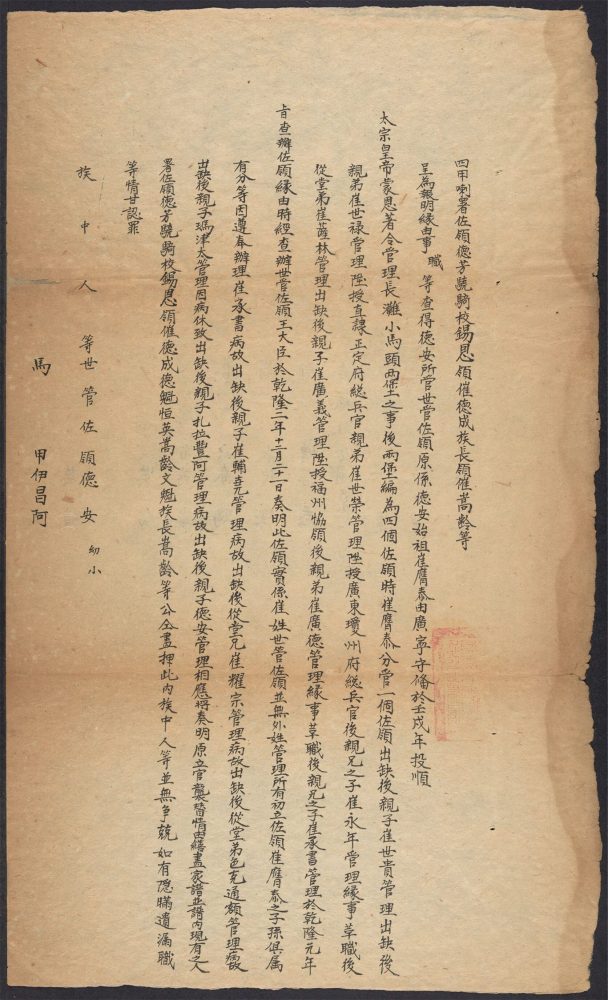 四甲喇署佐領德芳驍騎校錫恩領催德成族長領催嵩齡等
呈為報明緣由事職等查得德安所管世管佐領原係德安始祖崔膺泰由廣寧守備於壬戌年投順
太宗皇帝蒙恩著令管理長灘小馬頭兩堡之事後兩堡編為四個佐領時崔膺泰分管一個佐領出缺後親子崔世貴管理出缺後
親弟崔世祿管理陞授直隸正定府総兵官親弟崔世榮管理陞授廣東瓊州府総兵官後親兄之子崔永年管理緣事革職後
從堂弟崔蓙林管理出缺後親子崔廣義管理陞授福州協領後親弟崔廣德管理緣事革職後親兄之子崔承書管理於乾隆元年
旨查辦佐領緣由時經查辦世管佐領王大臣於乾隆二年十二月二十一日奏明此佐領實係崔姓世管佐領並無外姓管理所有初立佐領崔膺泰之子孫俱屬
有分等因遵奉辦理崔承書病故出缺後親子崔輔堯管理病故出缺後從堂兄崔耀宗管理病故出缺後從堂弟色克通額管理病故
出缺後親子瑪津太管理因病休致出缺後親子扎拉豐阿管理病故出缺後親子德安管理相應將奏明原立官襲替情由繕畫家譜並譜內現有之人
署佐領德芳驍騎校錫恩領催德成德魁恒英嵩齡文魁族長嵩齡等公仝畫押此內族中人等並無爭競如有隱瞞遺漏職
等情甘認罪
族中人等世管佐領德安幼小
馬甲伊昌阿